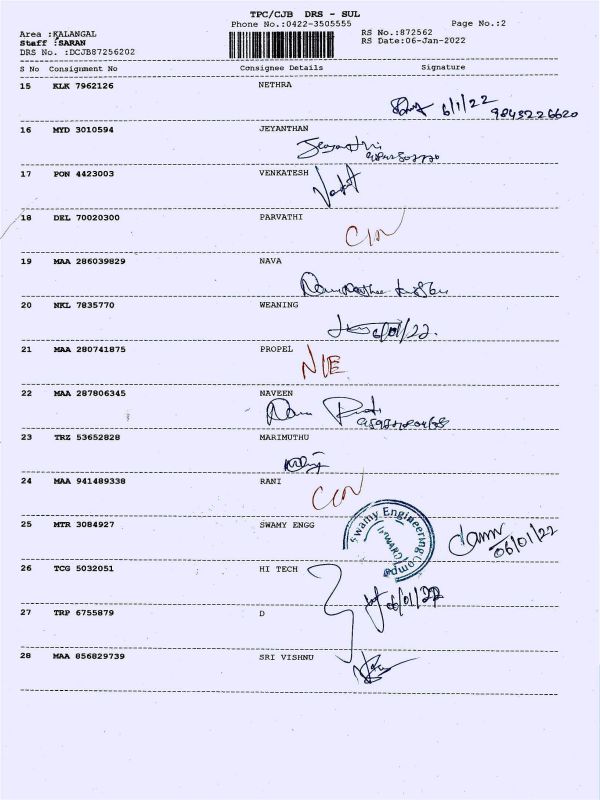 TPC/CJB DRS - SUL
Phone No.:0422-3505555
Page No.:2
Area :KALANGAL
RS No.:872562
Staff :SARAN
RS Date:06-Jan-2022
DRS No. :DCJB87256202
S No Consignment No Consignee Details Signature
15 KLK 7962126 NETHRA
6/1/22 9843226620
16 MYD 3010594 JEYANTHAN
17 PON 4423003 VENKATESH
18 DEL 70020300 PARVATHI
19 MAA 286039829 NAVA
20 NKL 7835770 WEANING
6/01/22.
21 MAA 280741875 PROPEL
N/E
22 MAA 287806345 NAVEEN
23 TRZ 53652828 MARIMUTHU
24 MAA 941489338 RANI
25 MTR 3084927 SWAMY ENGG
Swamy Engineering
06/01/22
26 TCG 5032051 HI TECH
06/01/22
27 TRP 6755879 D
28 MAA 856829739 SRI VISHNU